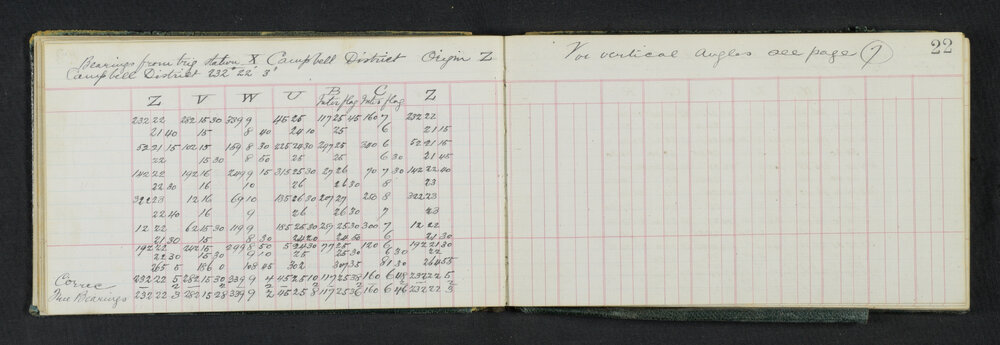 Bearings from trig station X Campbell District Origin Z
Campbell District 232° 22' 3"
Z V W U B C Z
Inter flag Inter flag
232 22 282 15 30 339 9 45 25 117 25 45 160 7 232 22
21 40 15 8 40 24 10 25 6 21 15
52 21 15 102 15 159 8 30 225 24 30 297 25 340 6 52 21 15
22 15 30 8 50 25 25 6 30 21 45
142 22 192 16 249 9 15 315 25 30 27 26 70 7 30 142 22 40
22 30 16 10 26 26 30 8 23
322 23 12 16 69 10 135 26 30 207 27 250 8 322 23
22 40 16 9 26 26 30 7 23
12 22 62 15 30 119 9 185 25 30 257 25 30 300 7 12 22
21 30 15 8 30 24 20 24 50 6 21 30
192 22 242 15 299 8 50 5 24 30 77 25 120 6 192 21 30
22 30 15 30 9 10 25 25 30 6 30 22
265 5 186 0 108 45 302 307 35 81 30 264 55
Correc 232 22 5 282 15 30 339 9 4 45 25 10 117 25 38 160 6 48 232 22 5
2 2 2 2 2 2 2
True Bearings 232 22 3 282 15 28 339 9 2 45 25 8 117 25 36 160 6 46 232 22 3
For vertical angles see page (7)
22